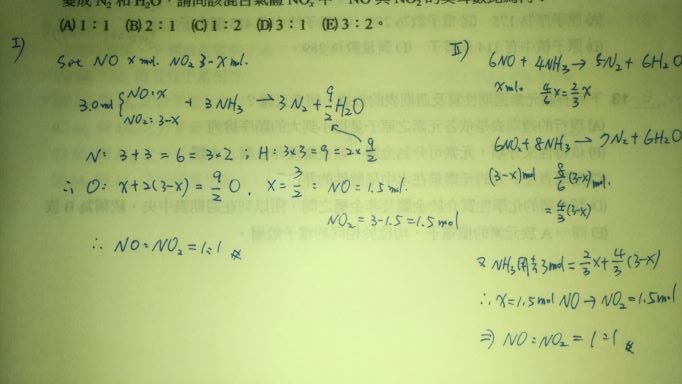 變成 N₂ 和 H₂O，請問該混合氣體 NOₓ 中，NO 與 NO₂ 的莫耳數比為何？
(A) 1：1 (B) 2：1 (C) 1：2 (D) 3：1 (E) 3：2。
I)
Set NO x mol. NO₂ 3-x mol.
3.0mol { NO: x NO₂: 3-x + 3NH₃ → 3N₂ + 9/2 H₂O
N: 3+3=6=3×2 ; H: 3×3=9=2×9/2
∴ O: x+2(3-x)=9/2 O, x=3/2 = NO=1.5mol.
NO₂=3-1.5=1.5mol
∴ NO:NO₂=1:1
II)
6NO + 4NH₃ → 5N₂ + 6H₂O
xmol. 4/6x=2/3x
6NO₂+8NH₃ → 7N₂+6H₂O
(3-x)mol 8/6(3-x)mol.
=4/3(3-x)
又 NH₃用去3mol=2/3x+4/3(3-x)
∴ x=1.5mol NO → NO₂=1.5mol
⇒ NO:NO₂=1:1